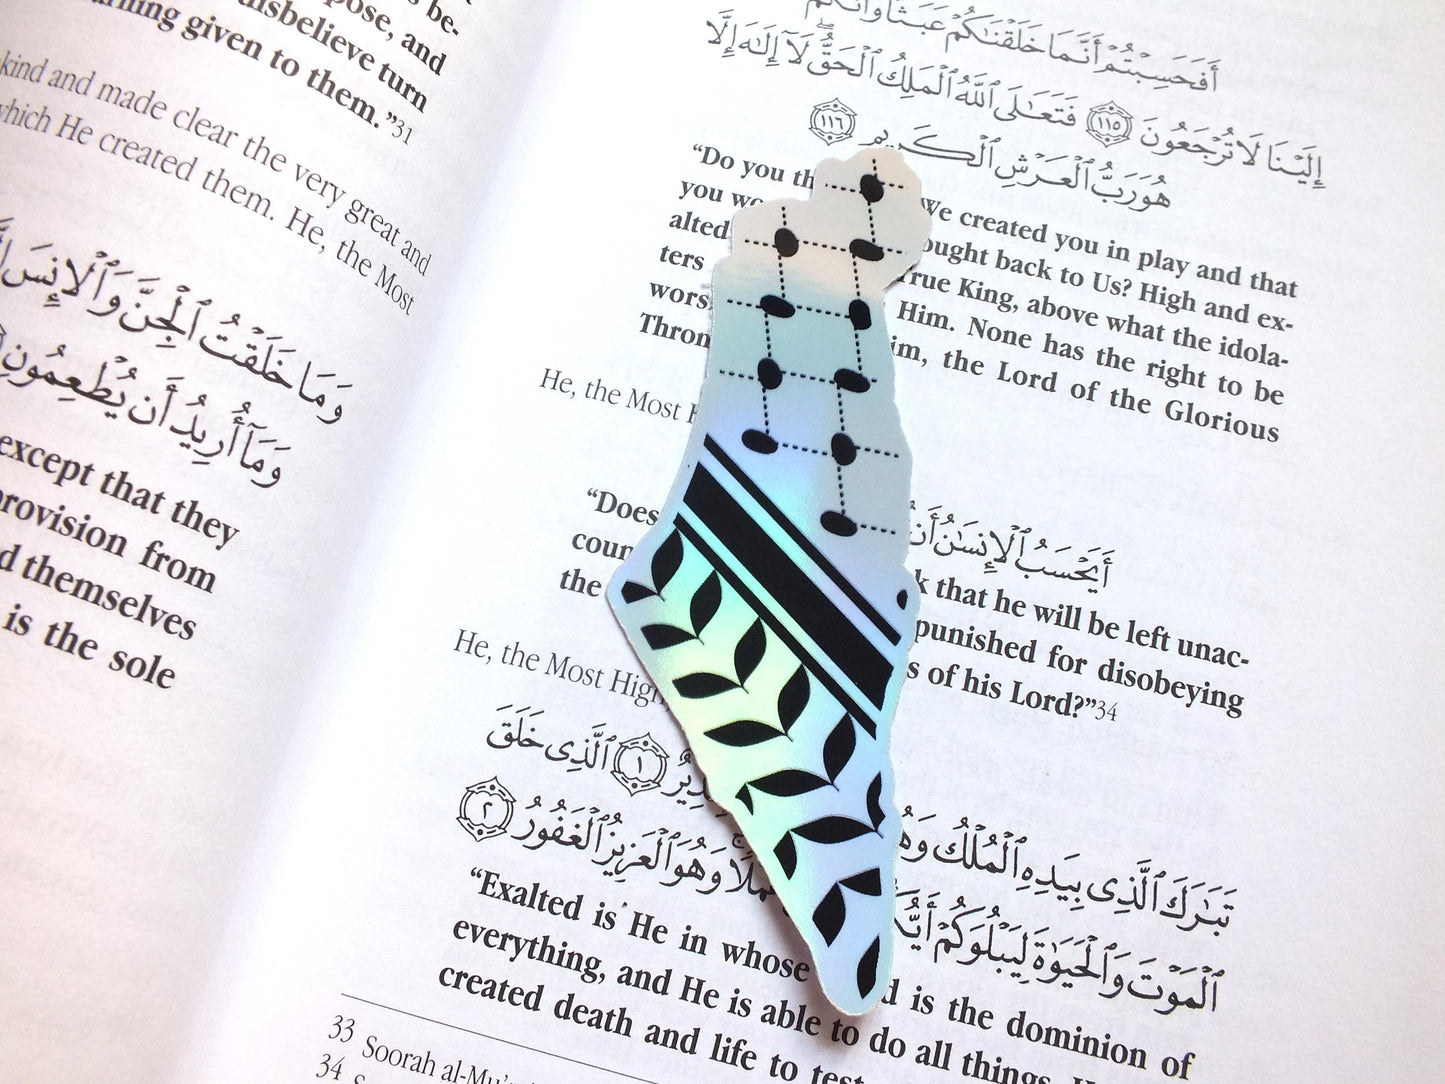 pose, and
disbelieve turn
given to them.”31
kind and made clear the very great and
which He created them. He, the Most
وَمَا خَلَقْتُ ٱلْجِنَّ وَٱلْإِنسَ
وَمَآ أُرِيدُ أَن يُطْعِمُونِ
except that they
provision from
d themselves
is the sole
أَفَحَسِبْتُمْ أَنَّمَا خَلَقْنَٰكُمْ عَبَثًا وَأَنَّكُمْ
إِلَيْنَا لَا تُرْجَعُونَ ١١٥ فَتَعَٰلَى ٱللَّهُ ٱلْمَلِكُ ٱلْحَقُّ لَآ إِلَٰهَ إِلَّا
هُوَ رَبُّ ٱلْعَرْشِ ٱلْكَرِيمِ ١١٦
“Do you th We created you in play and that
you wo ought back to Us? High and ex-
alted True King, above what the idola-
ters Him. None has the right to be
wors im, the Lord of the Glorious
Thron
He, the Most H
أَيَحْسَبُ ٱلْإِنسَٰنُ أَن
“Does k that he will be left unac-
coun punished for disobeying
the s of his Lord?”34
He, the Most High,
تَبَٰرَكَ ٱلَّذِى بِيَدِهِ ٱلْمُلْكُ وَهُ دِيرٌ ١ ٱلَّذِى خَلَقَ
ٱلْمَوْتَ وَٱلْحَيَوٰةَ لِيَبْلُوَكُمْ أَيُّكُ عَمَلًا وَهُوَ ٱلْعَزِيزُ ٱلْغَفُورُ ٢
“Exalted is He in whose d is the dominion of
everything, and He is able to do all things. H
created death and life to test
33 Soorah al-Mu’
34 S